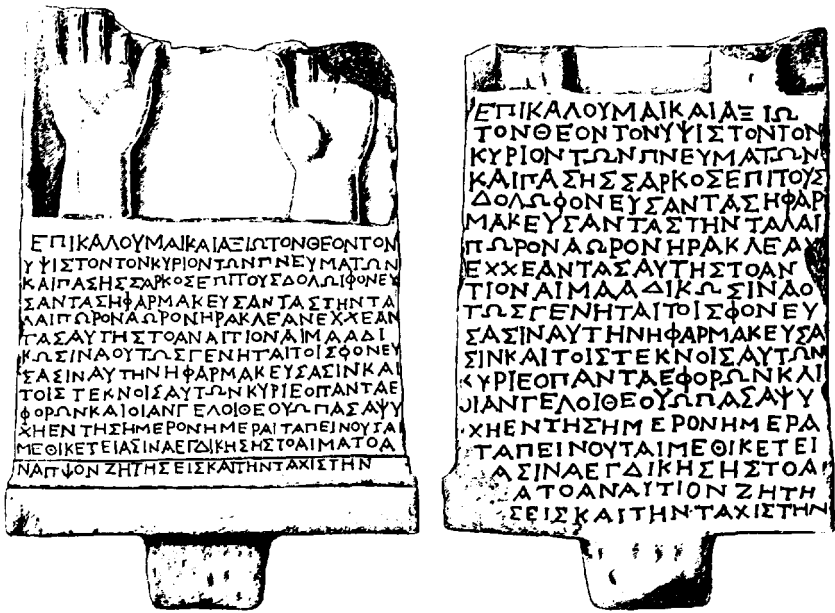 ΕΠΙΚΑΛΟΥΜΑΙΚΑΙΑΞΙΩΤΟΝΘΕΟΝΤΟΝ
ΥΨΙΣΤΟΝΤΟΝΚΥΡΙΟΝΤΩΝΠΝΕΥΜΑΤΩΝ
ΚΑΙΠΑΣΗΣΣΑΡΚΟΣΕΠΙΤΟΥΣΔΟΛΩΙΦΟΝΕΥ
ΣΑΝΤΑΣΗΦΑΡΜΑΚΕΥΣΑΝΤΑΣΤΗΝΤΑ
ΛΑΙΠΩΡΟΝΑΩΡΟΝΗΡΑΚΛΕΑΝΕΧΧΕΑΝ
ΤΑΣΑΥΤΗΣΤΟΑΝΑΙΤΙΟΝΑΙΜΑΑΔΙ
ΚΩΣΙΝΑΟΥΤΩΣΓΕΝΗΤΑΙΤΟΙΣΦΟΝΕΥ
ΣΑΣΙΝΑΥΤΗΝΗΦΑΡΜΑΚΕΥΣΑΣΙΝΚΑΙ
ΤΟΙΣΤΕΚΝΟΙΣΑΥΤΩΝΚΥΡΙΕΟΠΑΝΤΑΕ
ΦΟΡΩΝΚΑΙΟΙΑΝΓΕΛΟΙΘΕΟΥΩΠΑΣΑΨΥ
ΧΗΕΝΤΗΣΗΜΕΡΟΝΗΜΕΡΑΙΤΑΠΕΙΝΟΥΤΑΙ
ΜΕΘΙΚΕΤΕΙΑΣΙΝΑΕΓΔΙΚΗΣΗΣΤΟΑΙΜΑΤΟΑ
ΝΑΙΤΙΟΝΖΗΤΗΣΕΙΣΚΑΙΤΗΝΤΑΧΙΣΤΗΝ
ΕΠΙΚΑΛΟΥΜΑΙΚΑΙΑΞΙΩ
ΤΟΝΘΕΟΝΤΟΝΥΨΙΣΤΟΝΤΟΝ
ΚΥΡΙΟΝΤΩΝΠΝΕΥΜΑΤΩΝ
ΚΑΙΠΑΣΗΣΣΑΡΚΟΣΕΠΙΤΟΥΣ
ΔΟΛΩΦΟΝΕΥΣΑΝΤΑΣΗΦΑΡ
ΜΑΚΕΥΣΑΝΤΑΣΤΗΝΤΑΛΑΙ
ΠΩΡΟΝΑΩΡΟΝΗΡΑΚΛΕΑΝ
ΕΧΧΕΑΝΤΑΣΑΥΤΗΣΤΟΑΝ
ΤΙΟΝΑΙΜΑΑΔΙΚΩΣΙΝΑΟ
ΤΩΣΓΕΝΗΤΑΙΤΟΙΣΦΟΝΕΥ
ΣΑΣΙΝΑΥΤΗΝΗΦΑΡΜΑΚΕΥΣΑ
ΣΙΝΚΑΙΤΟΙΣΤΕΚΝΟΙΣΑΥΤΩΝ
ΚΥΡΙΕΟΠΑΝΤΑΕΦΟΡΩΝΚΑΙ
ΟΙΑΝΓΕΛΟΙΘΕΟΥΩΠΑΣΑΨΥ
ΧΗΕΝΤΗΣΗΜΕΡΟΝΗΜΕΡΑ
ΤΑΠΕΙΝΟΥΤΑΙΜΕΘΙΚΕΤΕΙ
ΑΣΙΝΑΕΓΔΙΚΗΣΗΣΤΟΑΙ
ΑΤΟΑΝΑΥΤΙΟΝΖΗΤΗ
ΣΕΙΣΚΑΙΤΗΝΤΑΧΙΣΤΗΝ